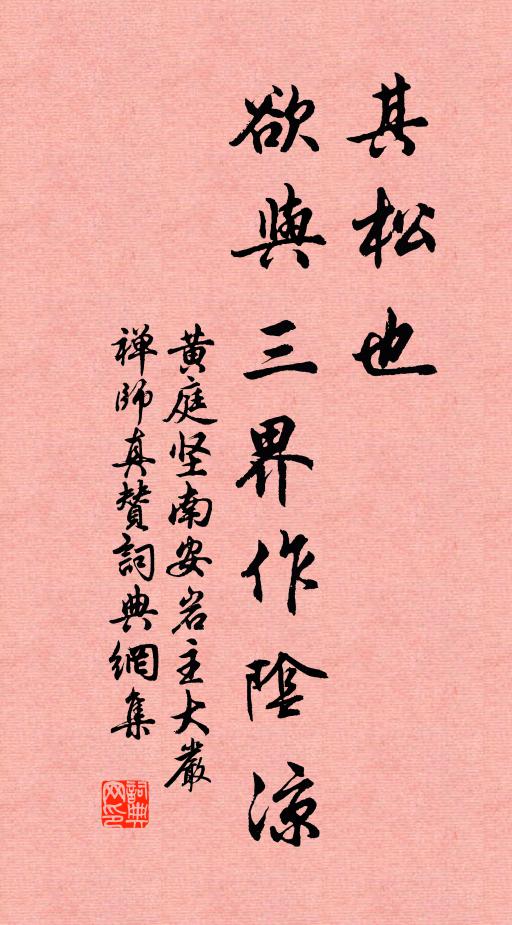 其松也
欲與三界作陰涼
黄庭坚南安岩主大嚴
禅師真赞詞典網集
詞典网印